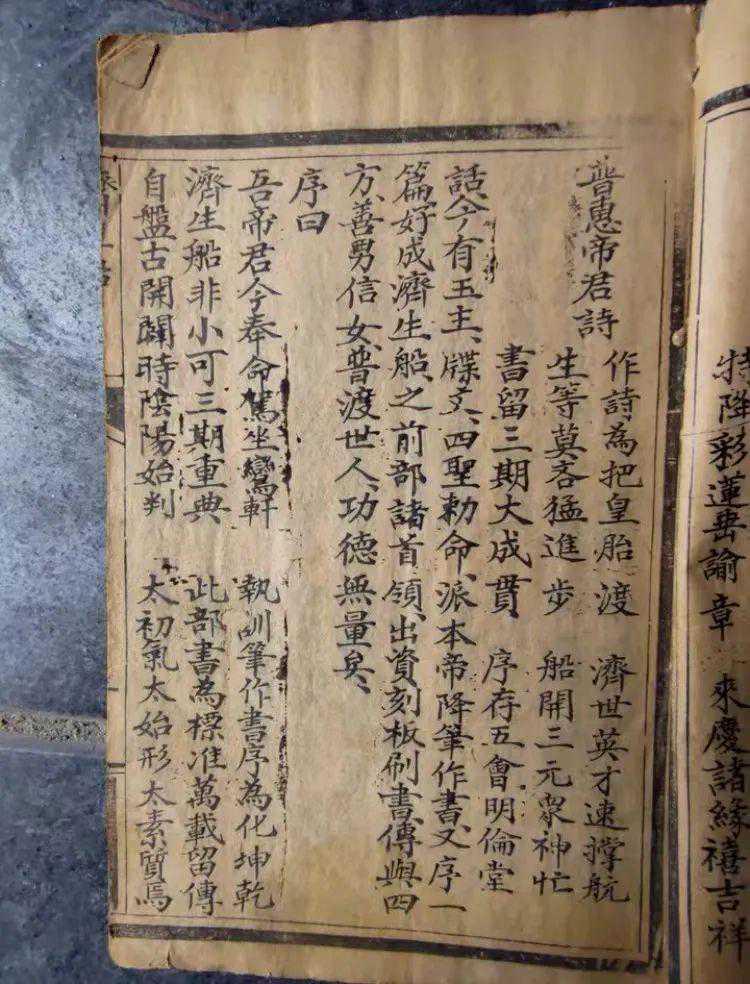 特陞彩蓮岳諭章　來慶諸緣禧吉祥
普惠帝君詩
作詩為把皇胎渡　濟世英才速撐航
生等莫吝猛進步　船開三元眾神忙
書留三期大成貫　序存五會明倫堂
話、今有玉主、牒文、四聖勅命、派本帝降筆作書、又序一
篇、好成濟生船、之前部諸首領、出資刻板刷書、傳與四
方、善男信女、普渡世人、功德無量矣、
序曰
吾帝君今奉命駕坐鸞軒　執訓筆作書序為化坤乾
濟生船非小可三期重典　此部書為標准萬載留傳
自盤古開闢時陰陽始判　太初氣太始形太素質焉